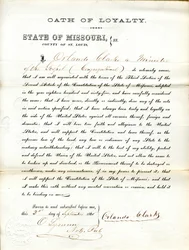 OATH OF LOYALTY.
STATE OF MISSOURI,
COUNTY OF ST. LOUIS.
I, Orlando Clark a Minister
of the
that I am well acquainted with the terms of the third Section of the
Second Article of the Constitution of the State of Missouri, adopted
in the year eighteen hundred and sixty-five, and have carefully considered
the same; that I have never, directly or indirectly, done any of the acts
in said section specified; that I have always been truly and loyally on the
side of the United States against all enemies thereof, foreign and
domestic; that I will bear true faith and allegiance to the United
States, and will support the Constitution and laws thereof, as the
supreme law of the land, any law or ordinance of any State to the
contrary notwithstanding; that I will, to the best of my ability, protect
and defend the Union of the United States, and not allow the same to
be broken up and dissolved, or the Government thereof to be destroyed or
overthrown, under any circumstances, if in my power to prevent it; that
I will support the Constitution of the State of Missouri; and that
I make this oath without any mental reservation or evasion, and hold it
to be binding on me.
Sworn to and subscribed before me,
this 2 day of September 186
Orlando Clark